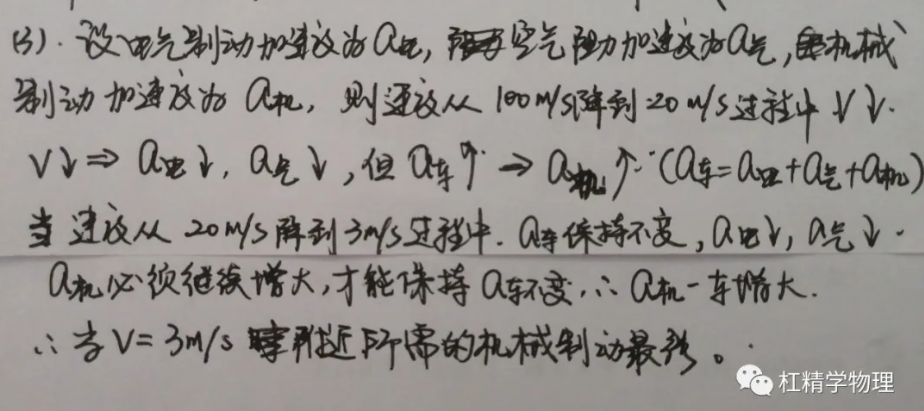 (3). 设电气制动加速度为a电, 空气阻力加速度为a气, 机械
制动加速度为 a机, 则速度从 100m/s降到20m/s过程中 V↓.
V↓⇒ a电↓, a气↓, 但 a车↑ → a机↑∵(a车=a电+a气+a机)
当速度从 20m/s 降到 3m/s过程中. a车保持不变, a电↓, a气↓.
a机必须继续增大, 才能保持 a车不变, ∴ a机一车增大.
∴ 当 V=3m/s 附近所需的机械制动最强。
杠精学物理